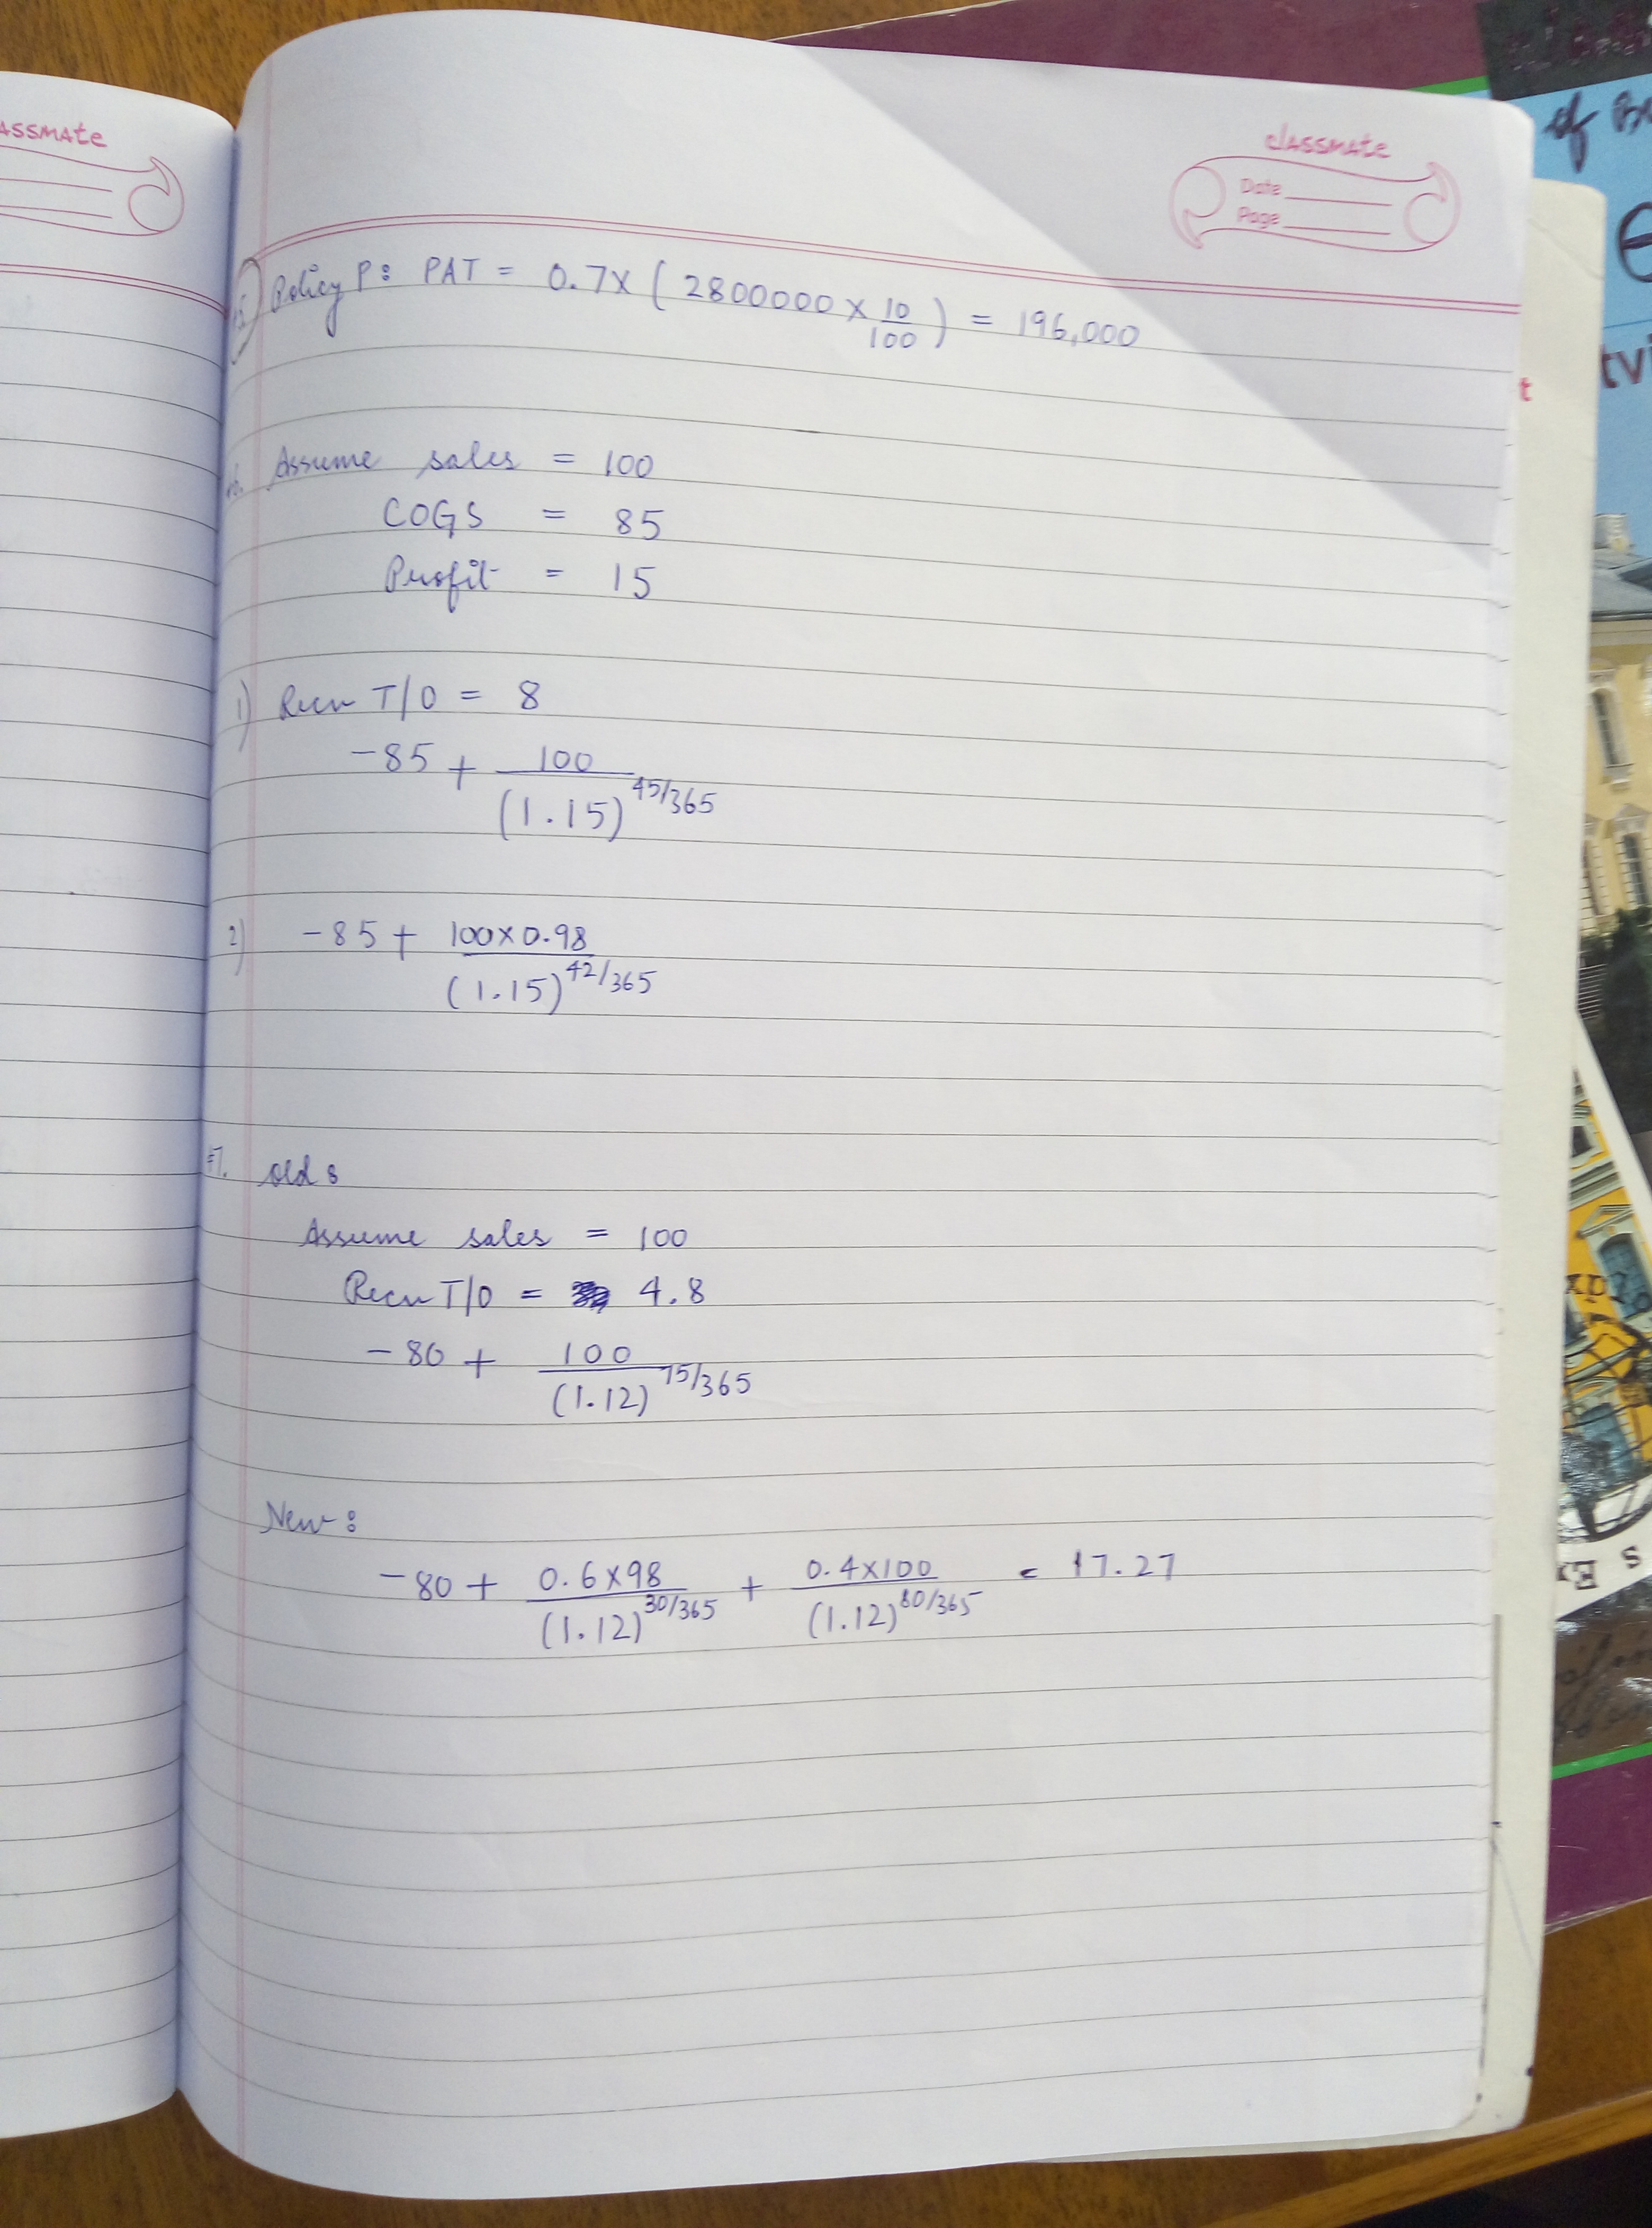 assmate
classmate
Date
Page
Policy P: PAT = 0.7 x ( 2800000 x 10/100 ) = 196,000
Assume sales = 100
COGS = 85
Profit = 15
1) Recv T/O = 8
-85 + 100/(1.15)^45/365
2) -85 + 100x0.98/(1.15)^42/365
Old:
Assume sales = 100
Recv T/O = 4.8
-80 + 100/(1.12)^75/365
New:
-80 + 0.6x98/(1.12)^30/365 + 0.4x100/(1.12)^80/365 = 17.27
of